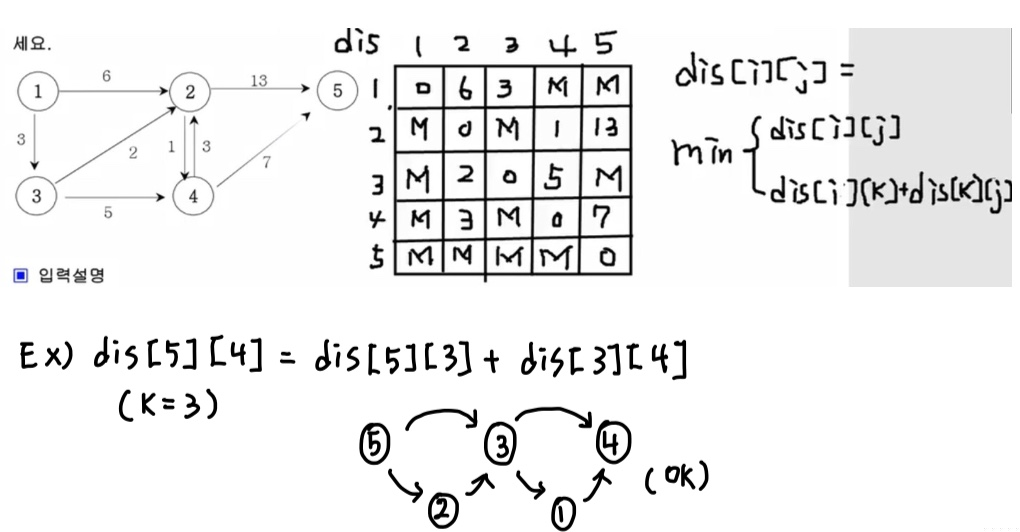 세요.
dis 1 2 3 4 5
1 0 6 3 M M
2 M 0 M 1 13
3 M 2 0 5 M
4 M 3 M 0 7
5 M M M M 0
1 6 2 13 5
3 2 1 3 7
3 5 4
dis[i][j] =
min { dis[i][j]
dis[i][k]+dis[k][j]
입력설명
Ex) dis[5][4] = dis[5][3] + dis[3][4]
(K=3)
5 3 4
2 1 (OK)